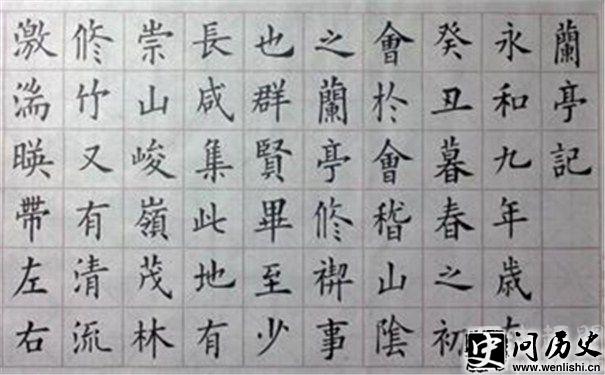 蘭亭記
永和九年歲在
癸丑暮春之初
會於會稽山陰
之蘭亭修禊事
也群賢畢至少
長咸集此地有
崇山峻嶺茂林
修竹又有清流
激湍暎帶左右
史 问历史
www.wenlishi.cn